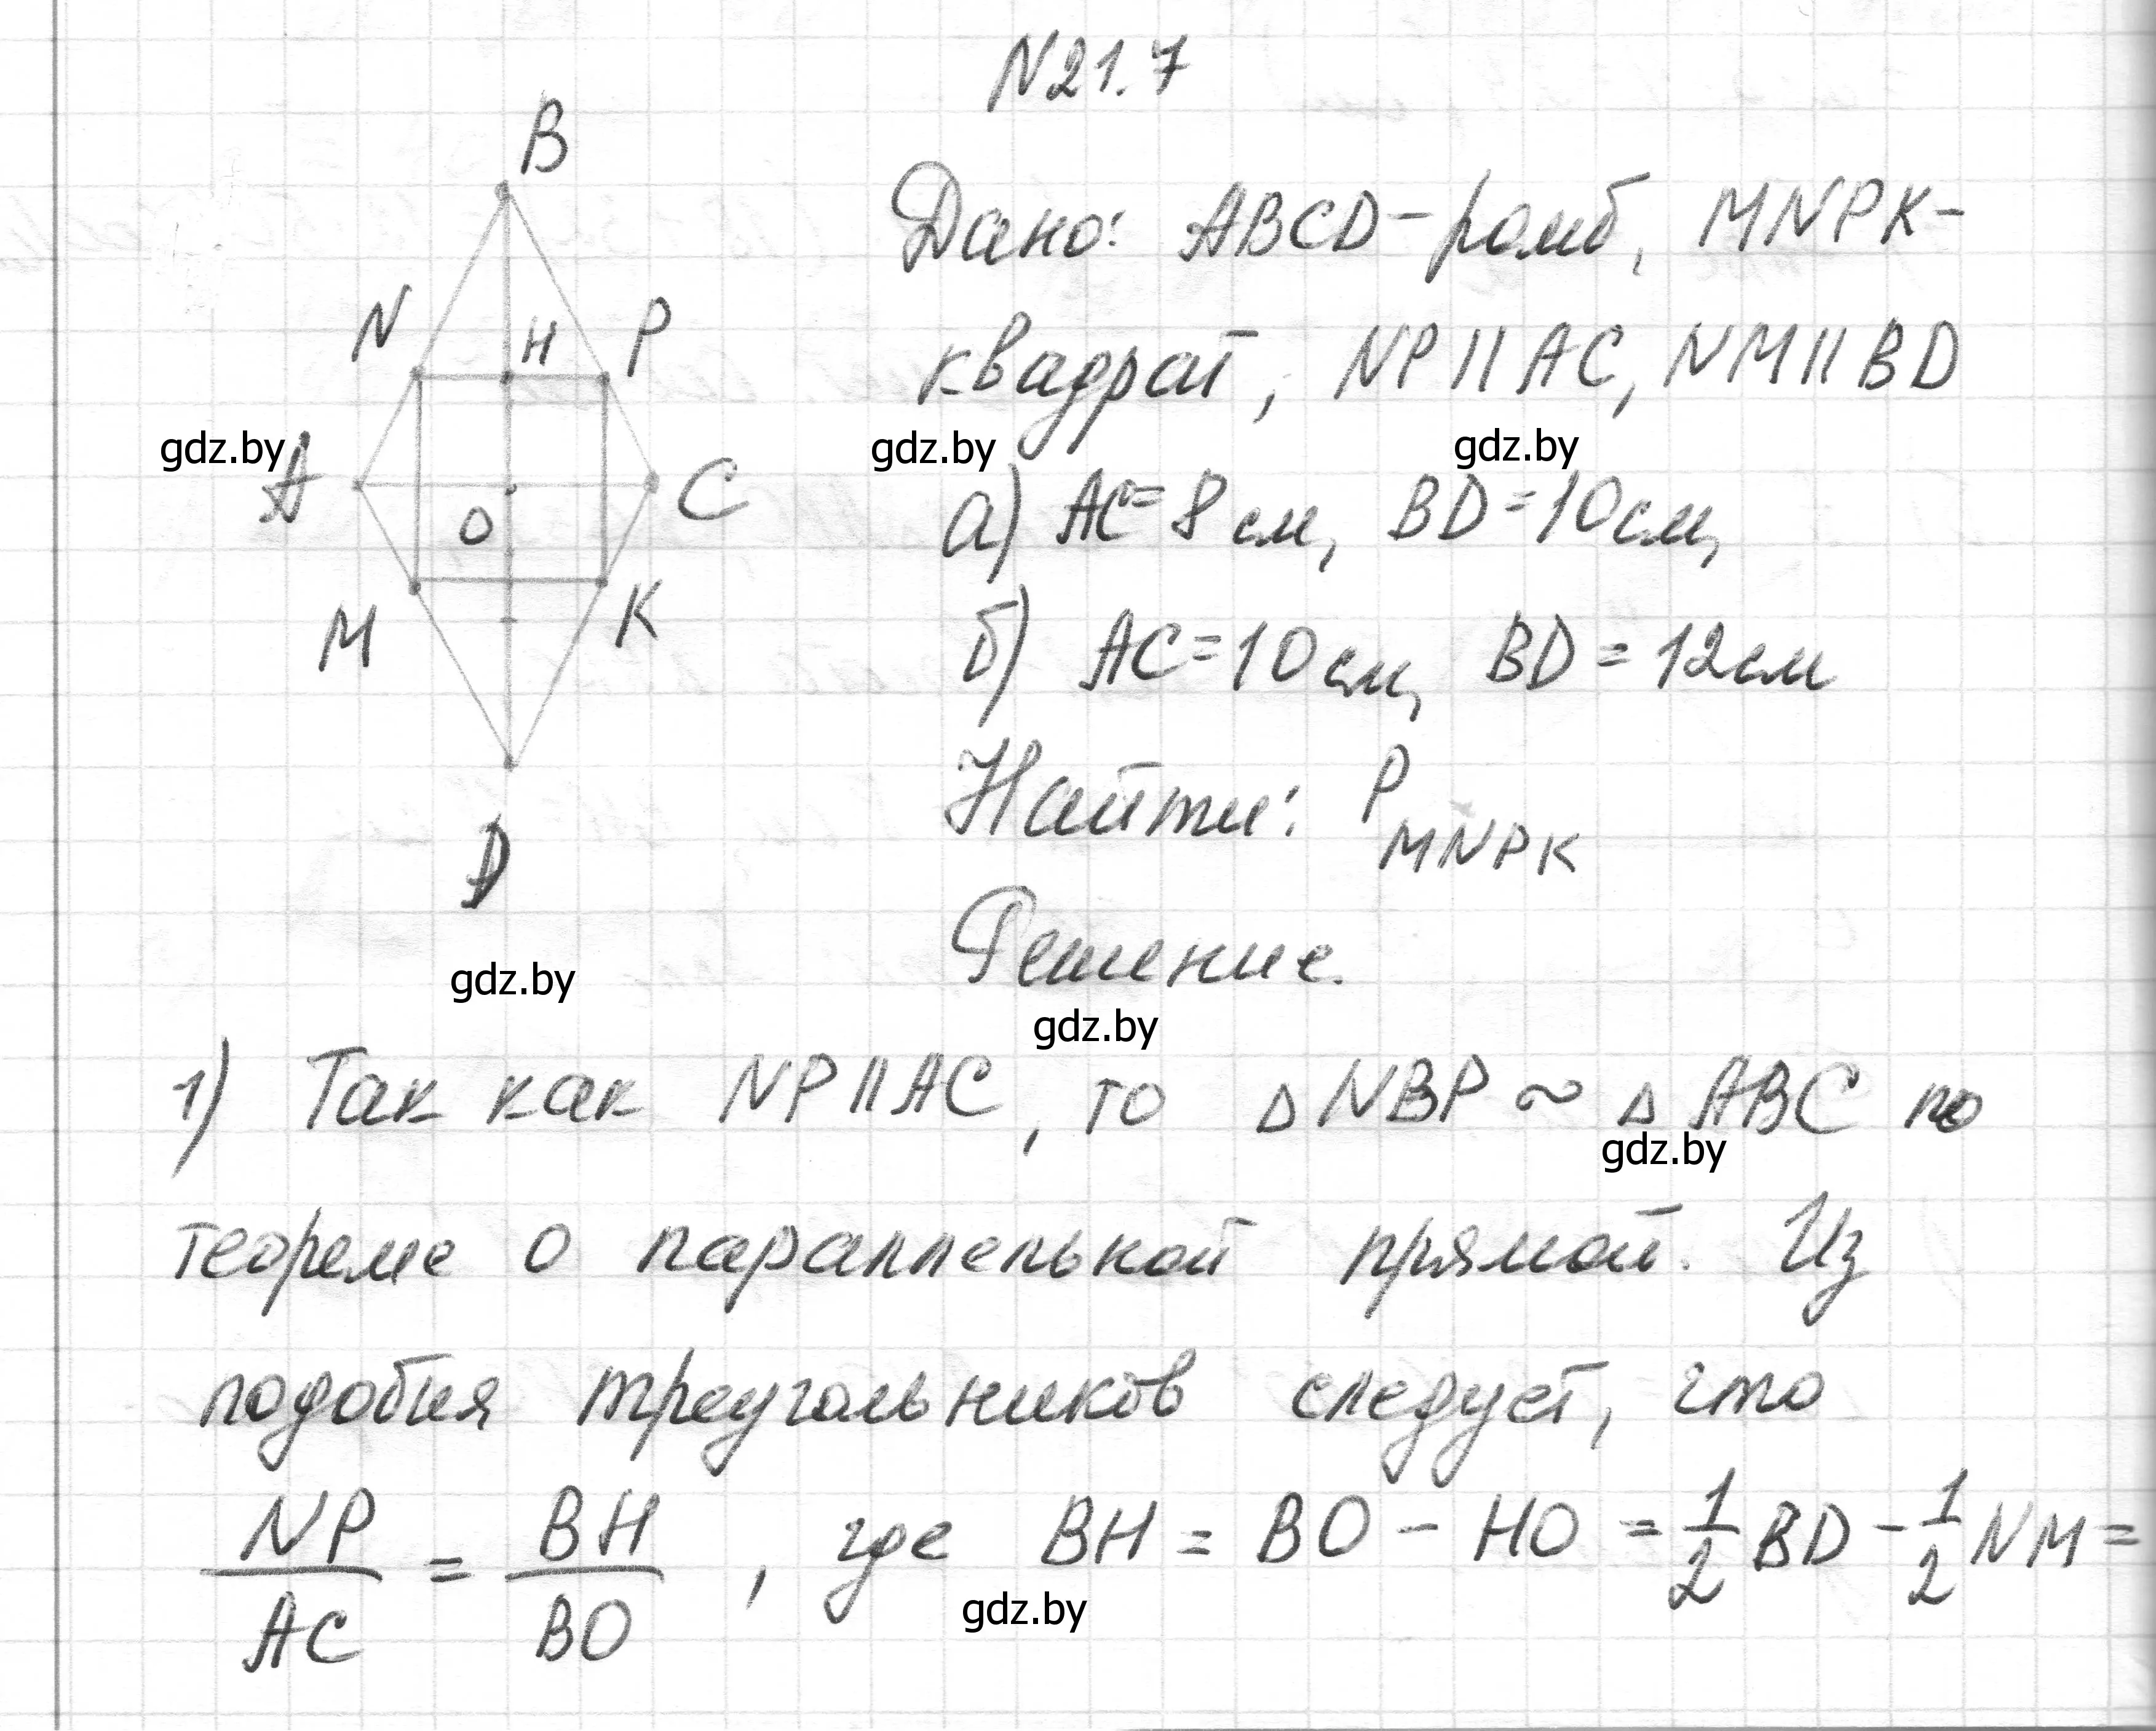 N21.7
B
Дано: ABCD - ромб, MNPK -
N H P
квадрат, NP || AC, NM || BD
gdz.by gdz.by gdz.by
A O C
а) AC = 8 см, BD = 10 см,
M K
б) AC = 10 см, BD = 12 см
Найти: P MNPK
D
Решение.
gdz.by
gdz.by
1) Так как NP || AC, то △ NBP ~ △ ABC по
gdz.by
теореме о параллельной прямой. Из
подобия треугольников следует, что
NP/AC = BH/BO, где BH = BO - HO = 1/2 BD - 1/2 NM =
gdz.by